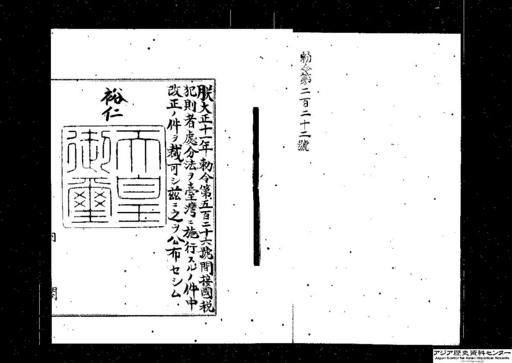 勅令第二百二十二號
朕大正十一年勅令第五百二十六號間接國税
犯則者處分法ヲ臺灣ニ施行スルノ件中
改正ノ件ヲ裁可シ茲ニ之ヲ公布セシム
裕仁
天皇御璽
内閣
アジア歴史資料センター
Japan Center for Asian Historical Records